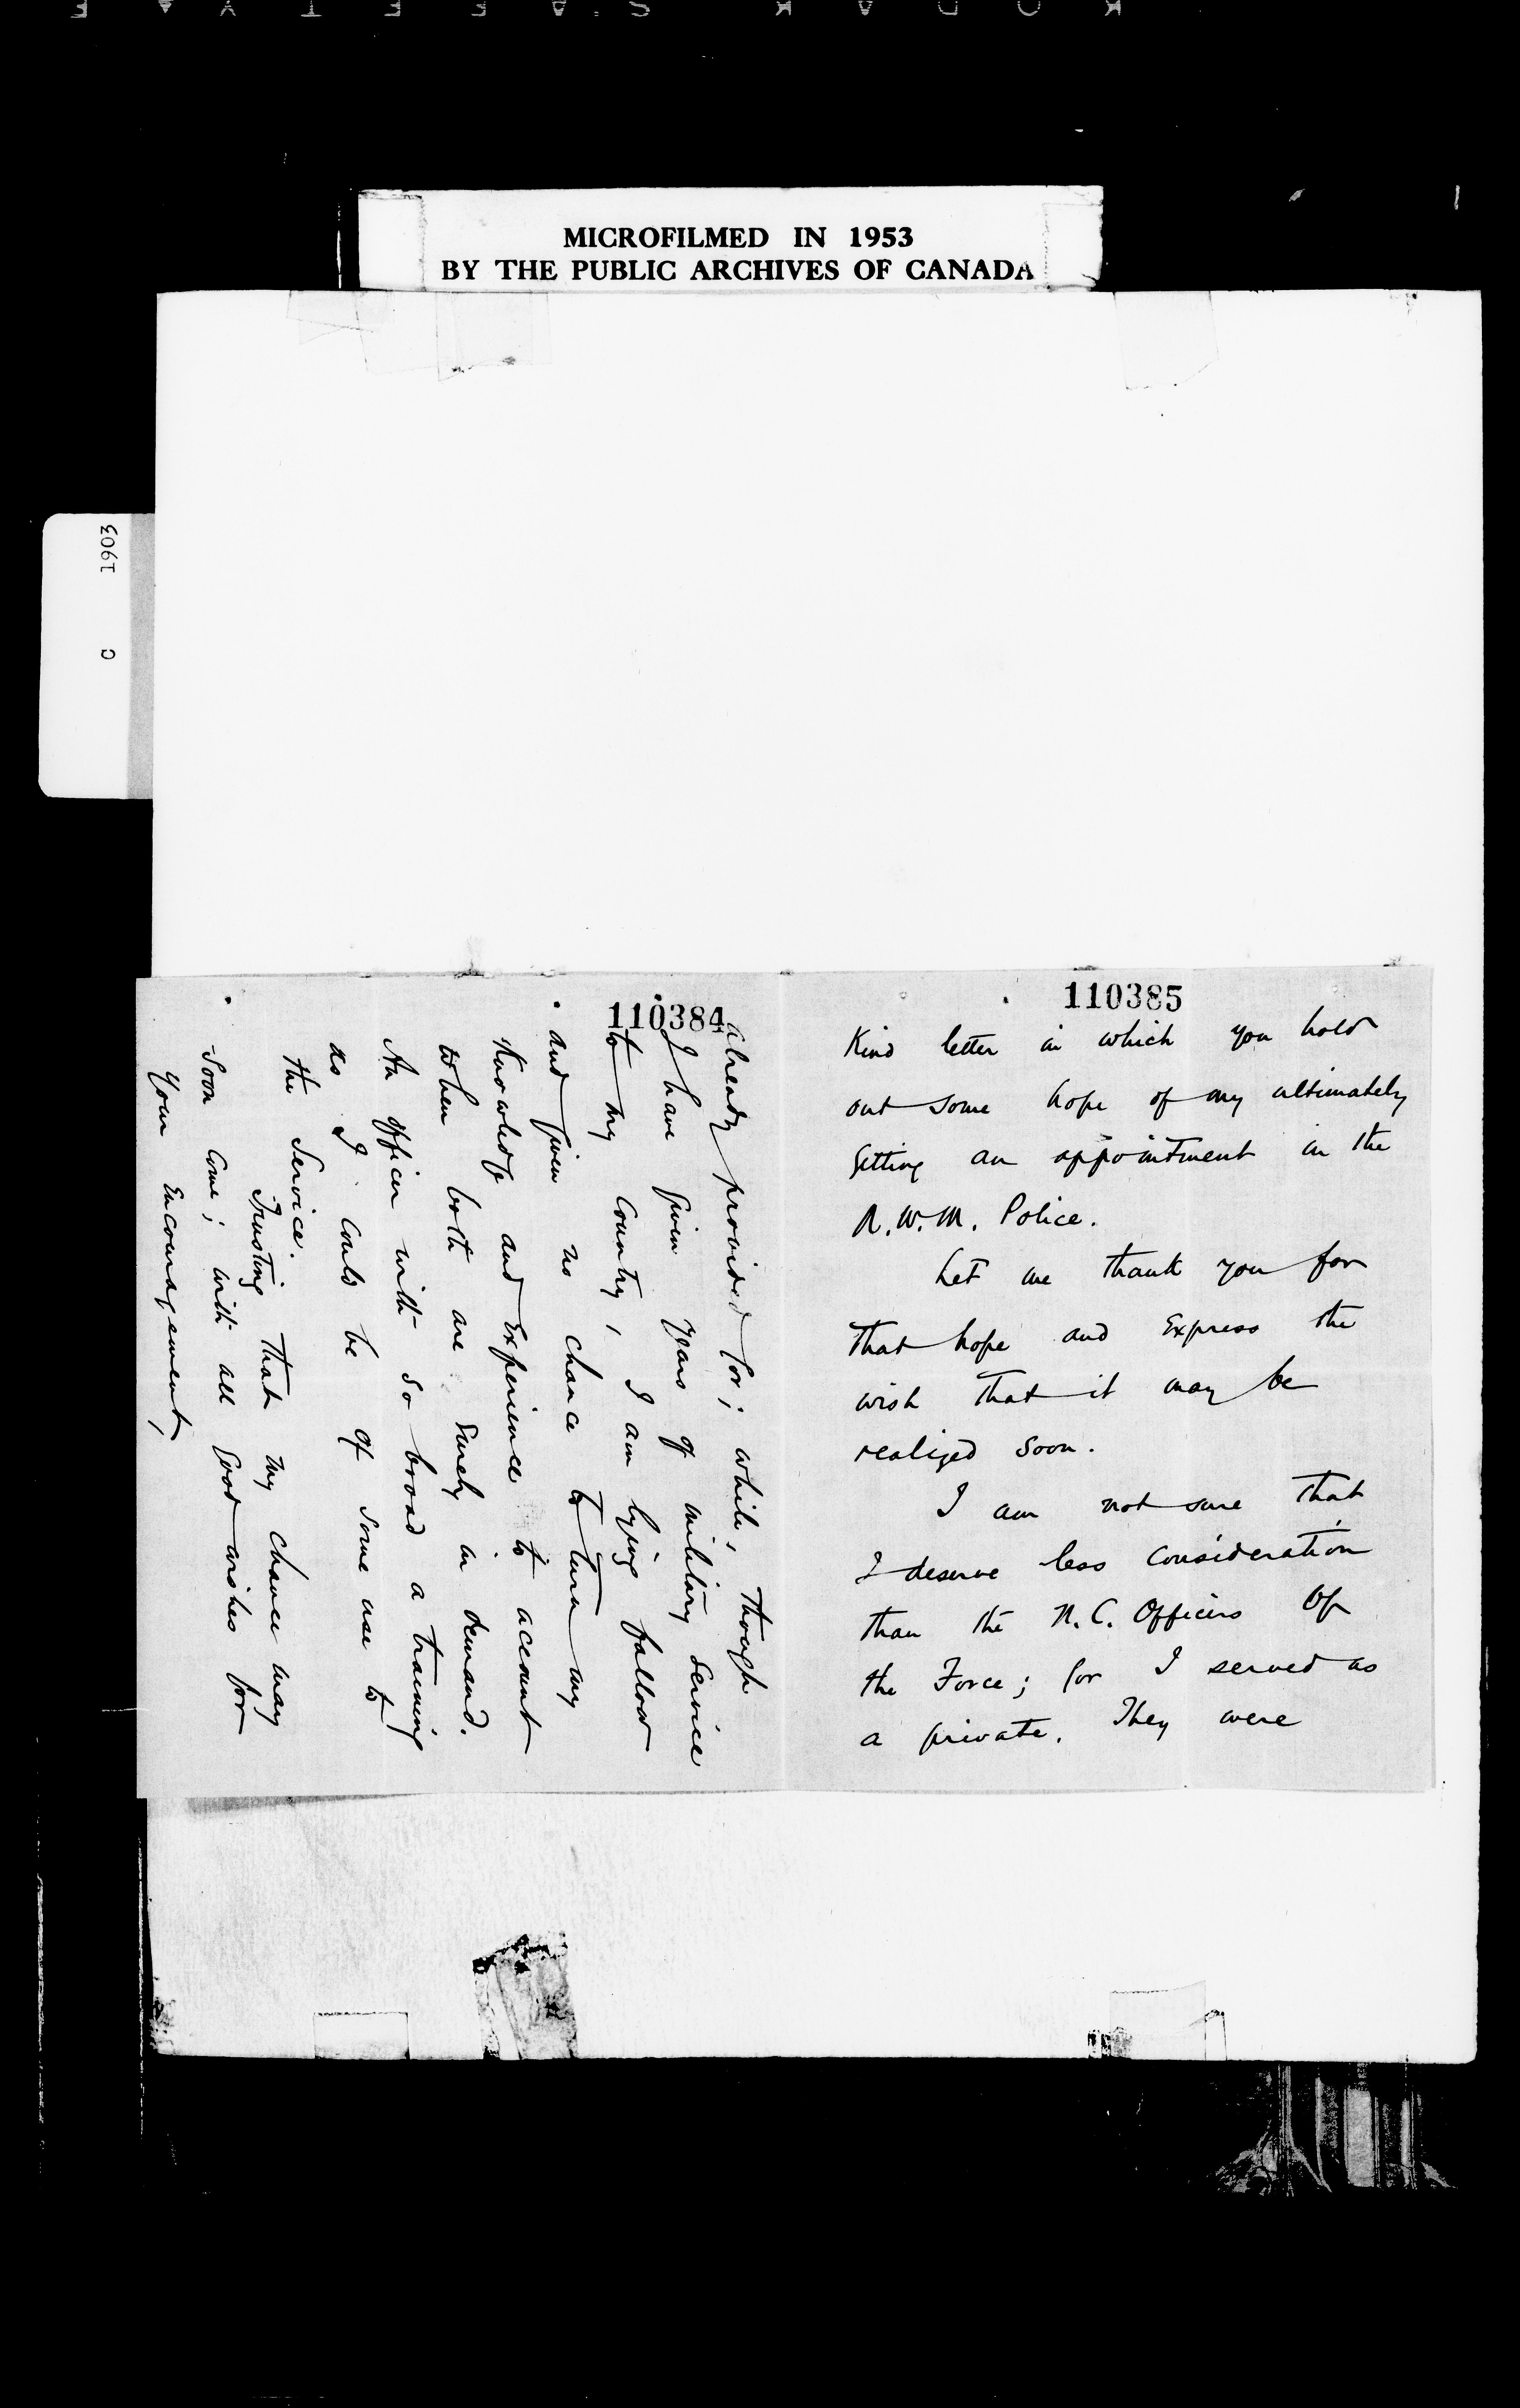 KODAK SAFETY
MICROFILMED IN 1953
BY THE PUBLIC ARCHIVES OF CANADA
C 1903
110385
Kind letter in which you hold
out some hope of my ultimately
getting an appointment in the
N.W.M. Police.
Let me thank you for
that hope and Express the
wish that it may be
realized soon.
I am not sure that
I deserve less consideration
than the N.C. Officers of
the Force; for I served as
a private. They were
110384
already provided for; while, though
I have given years of military service
to my Country, I am lying fallow
and given no chance to turn my
Knowledge and Experience to account
when both are surely in demand.
An officer with so broad a training
as I could be of some use to
the Service.
Trusting that my chance may
soon come; with all good wishes for
your Encouragement,